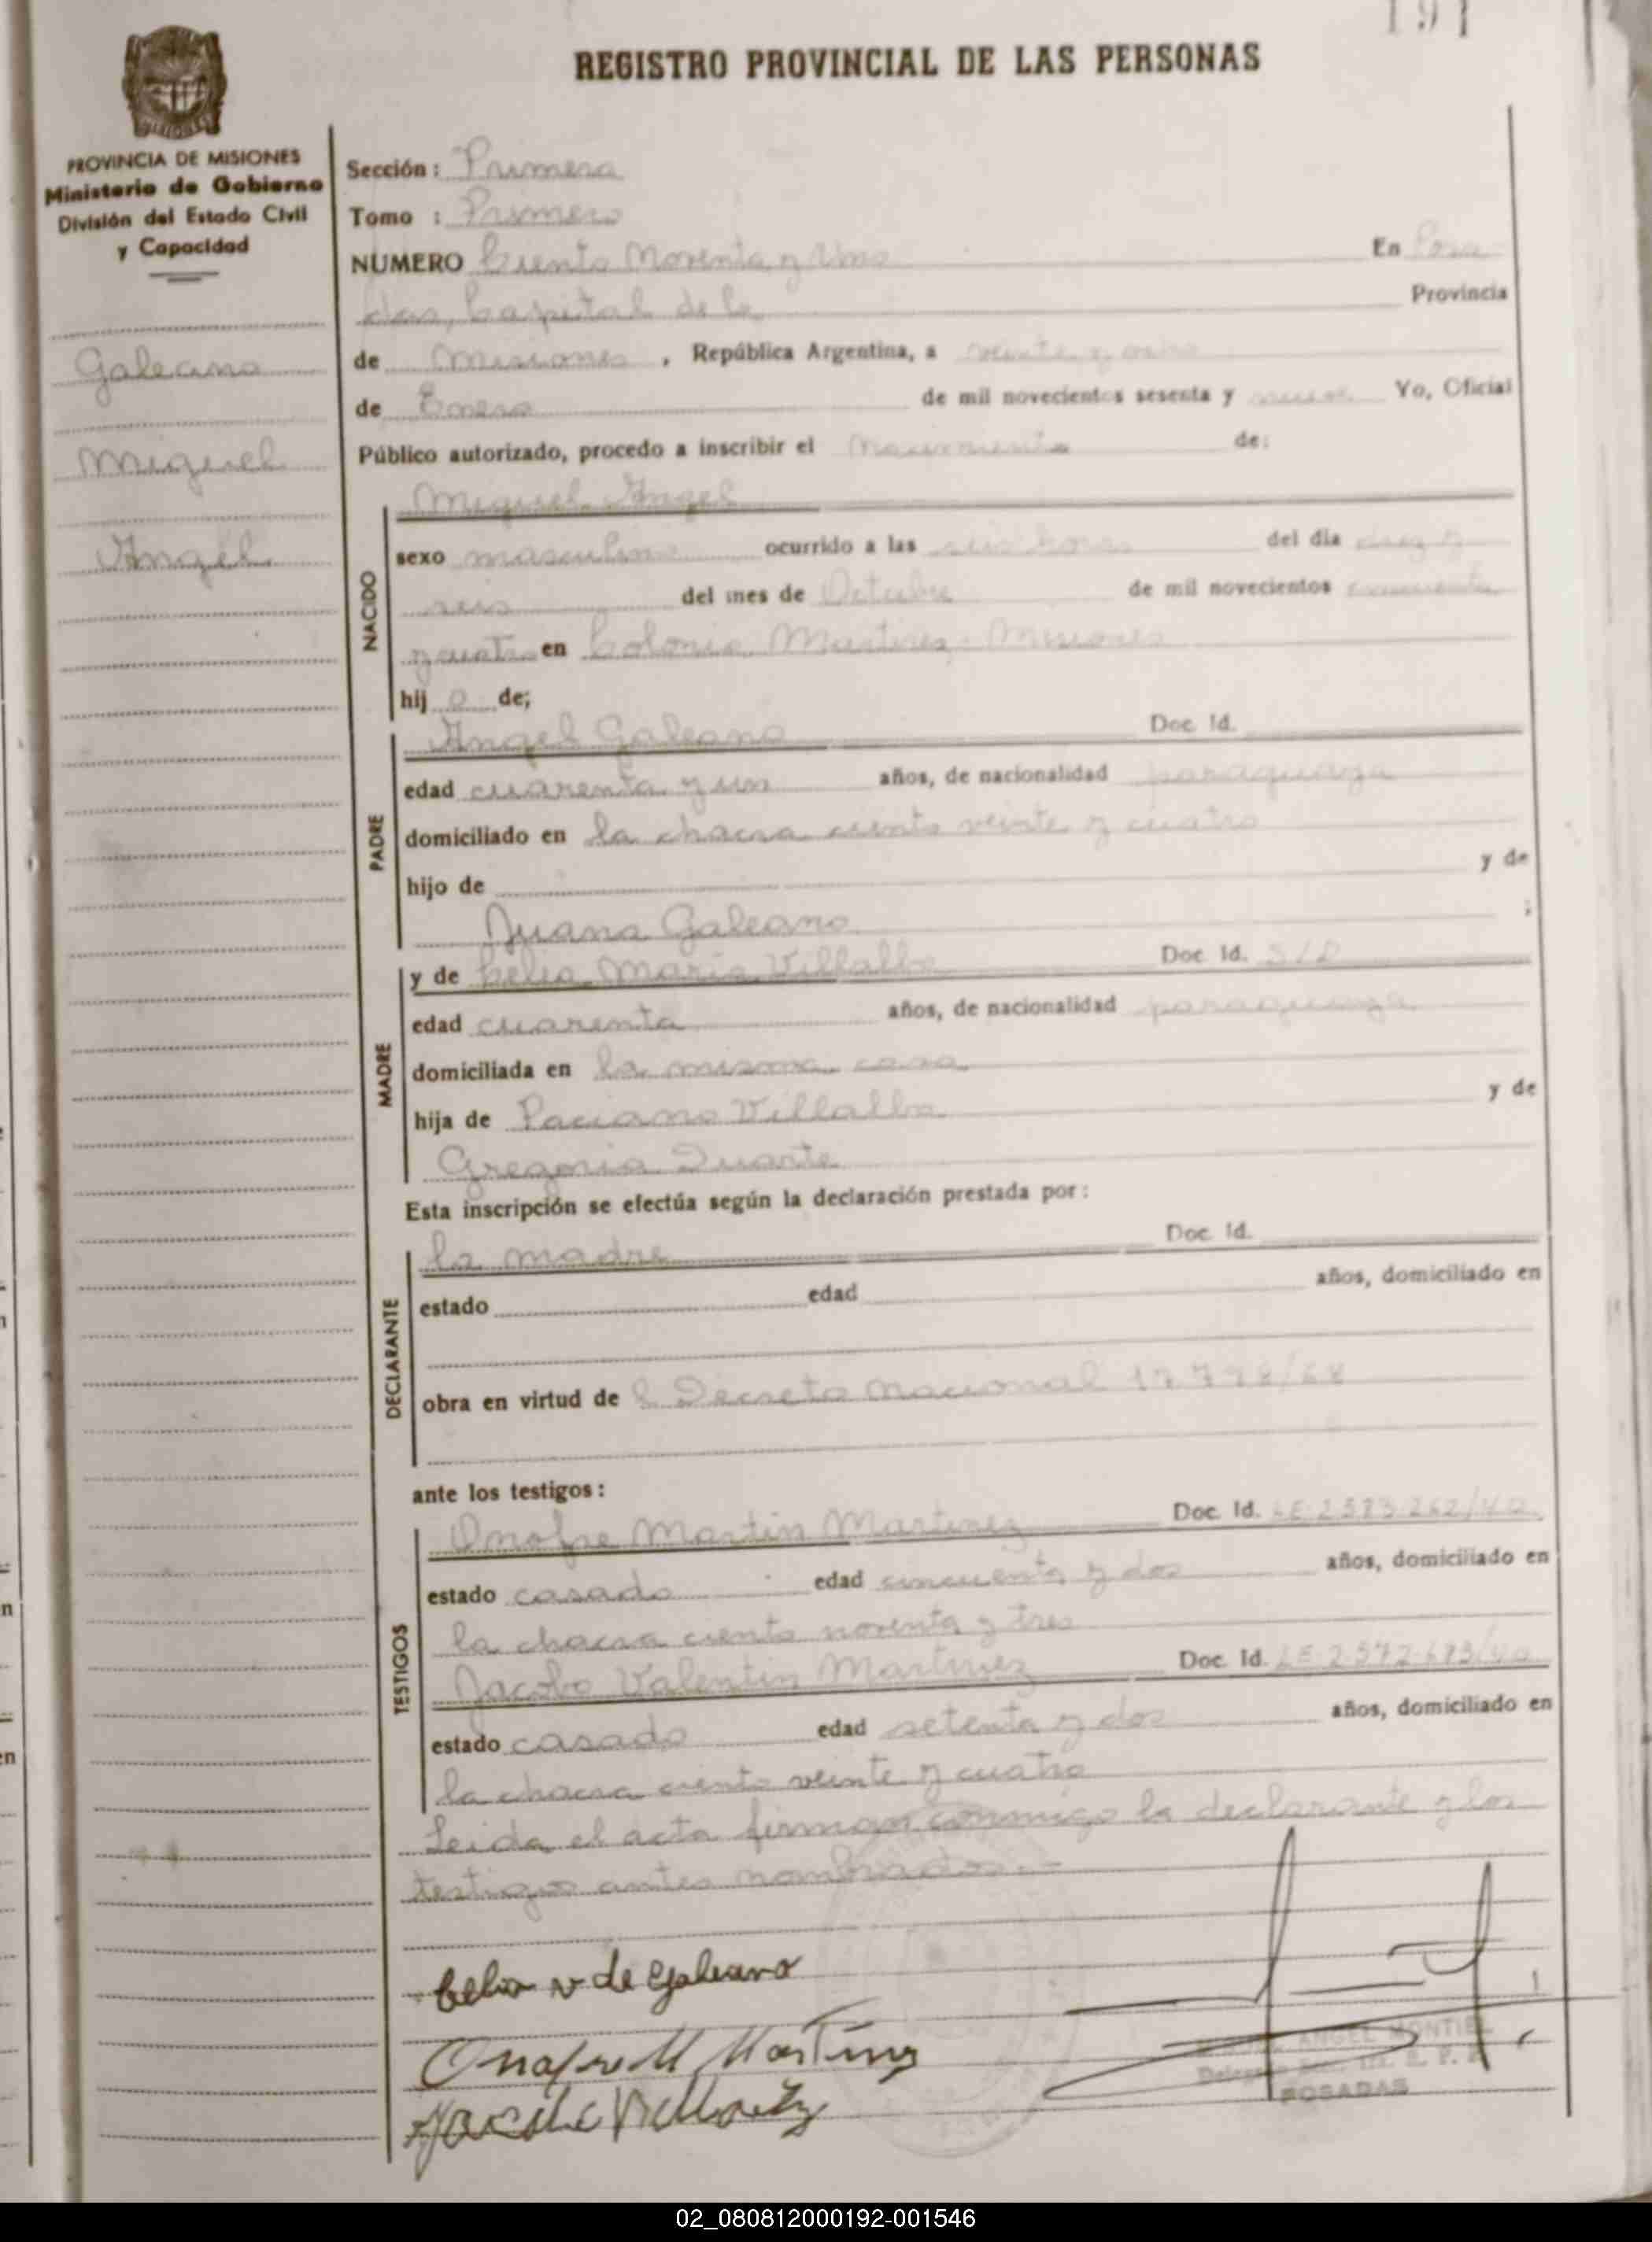 191
REGISTRO PROVINCIAL DE LAS PERSONAS
MISIONES
PROVINCIA DE MISIONES
Ministerio de Gobierno
División del Estado Civil
y Capacidad
Galeano
Miguel
Angel
Sección : Primera
Tomo : Primero
NUMERO Ciento Noventa y Uno En Posa
das, Capital de la Provincia
de Misiones , República Argentina, a veinte y ocho
de Enero de mil novecientos sesenta y nueve Yo, Oficial
Público autorizado, procedo a inscribir el Nacimiento de:
NACIDO
Miguel Angel
sexo masculino ocurrido a las seis horas del día diez y
seis del mes de Octubre de mil novecientos cincuenta
y cuatro en Colonia Martires - Misiones
hij o de;
PADRE
Angel Galeano Doc. Id.
edad cuarenta y un años, de nacionalidad paraguaya
domiciliado en la chacra ciento veinte y cuatro
hijo de y de
Juana Galeano ;
MADRE
y de Celia Maria Villalba Doc. Id. S/D
edad cuarenta años, de nacionalidad paraguaya
domiciliada en la misma casa
hija de Paciano Villalba y de
Gregoria Duarte
Esta inscripción se efectúa según la declaración prestada por :
DECLARANTE
la madre Doc. Id.
estado edad años, domiciliado en
obra en virtud de l Decreto Nacional /68
ante los testigos :
TESTIGOS
Onofre Martin Martinez Doc. Id. LE 2573262/40
estado casado edad cincuenta y dos años, domiciliado en
la chacra ciento noventa y tres
Jacobo Valentin Martinez Doc. Id. LE 2.572.673/40
estado casado edad setenta y dos años, domiciliado en
la chacra ciento veinte y cuatro
Leida el acta firman conmigo la declarante y los
testigos antes nombrados.-
Celia V de Galeano
Onofre M Martinez
ANGEL MONTIEL
POSADAS
02_080812000192-001546